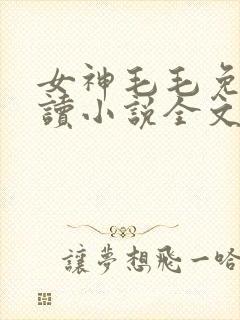 女神毛毛免
讀小説全文
讓夢想飛一哈